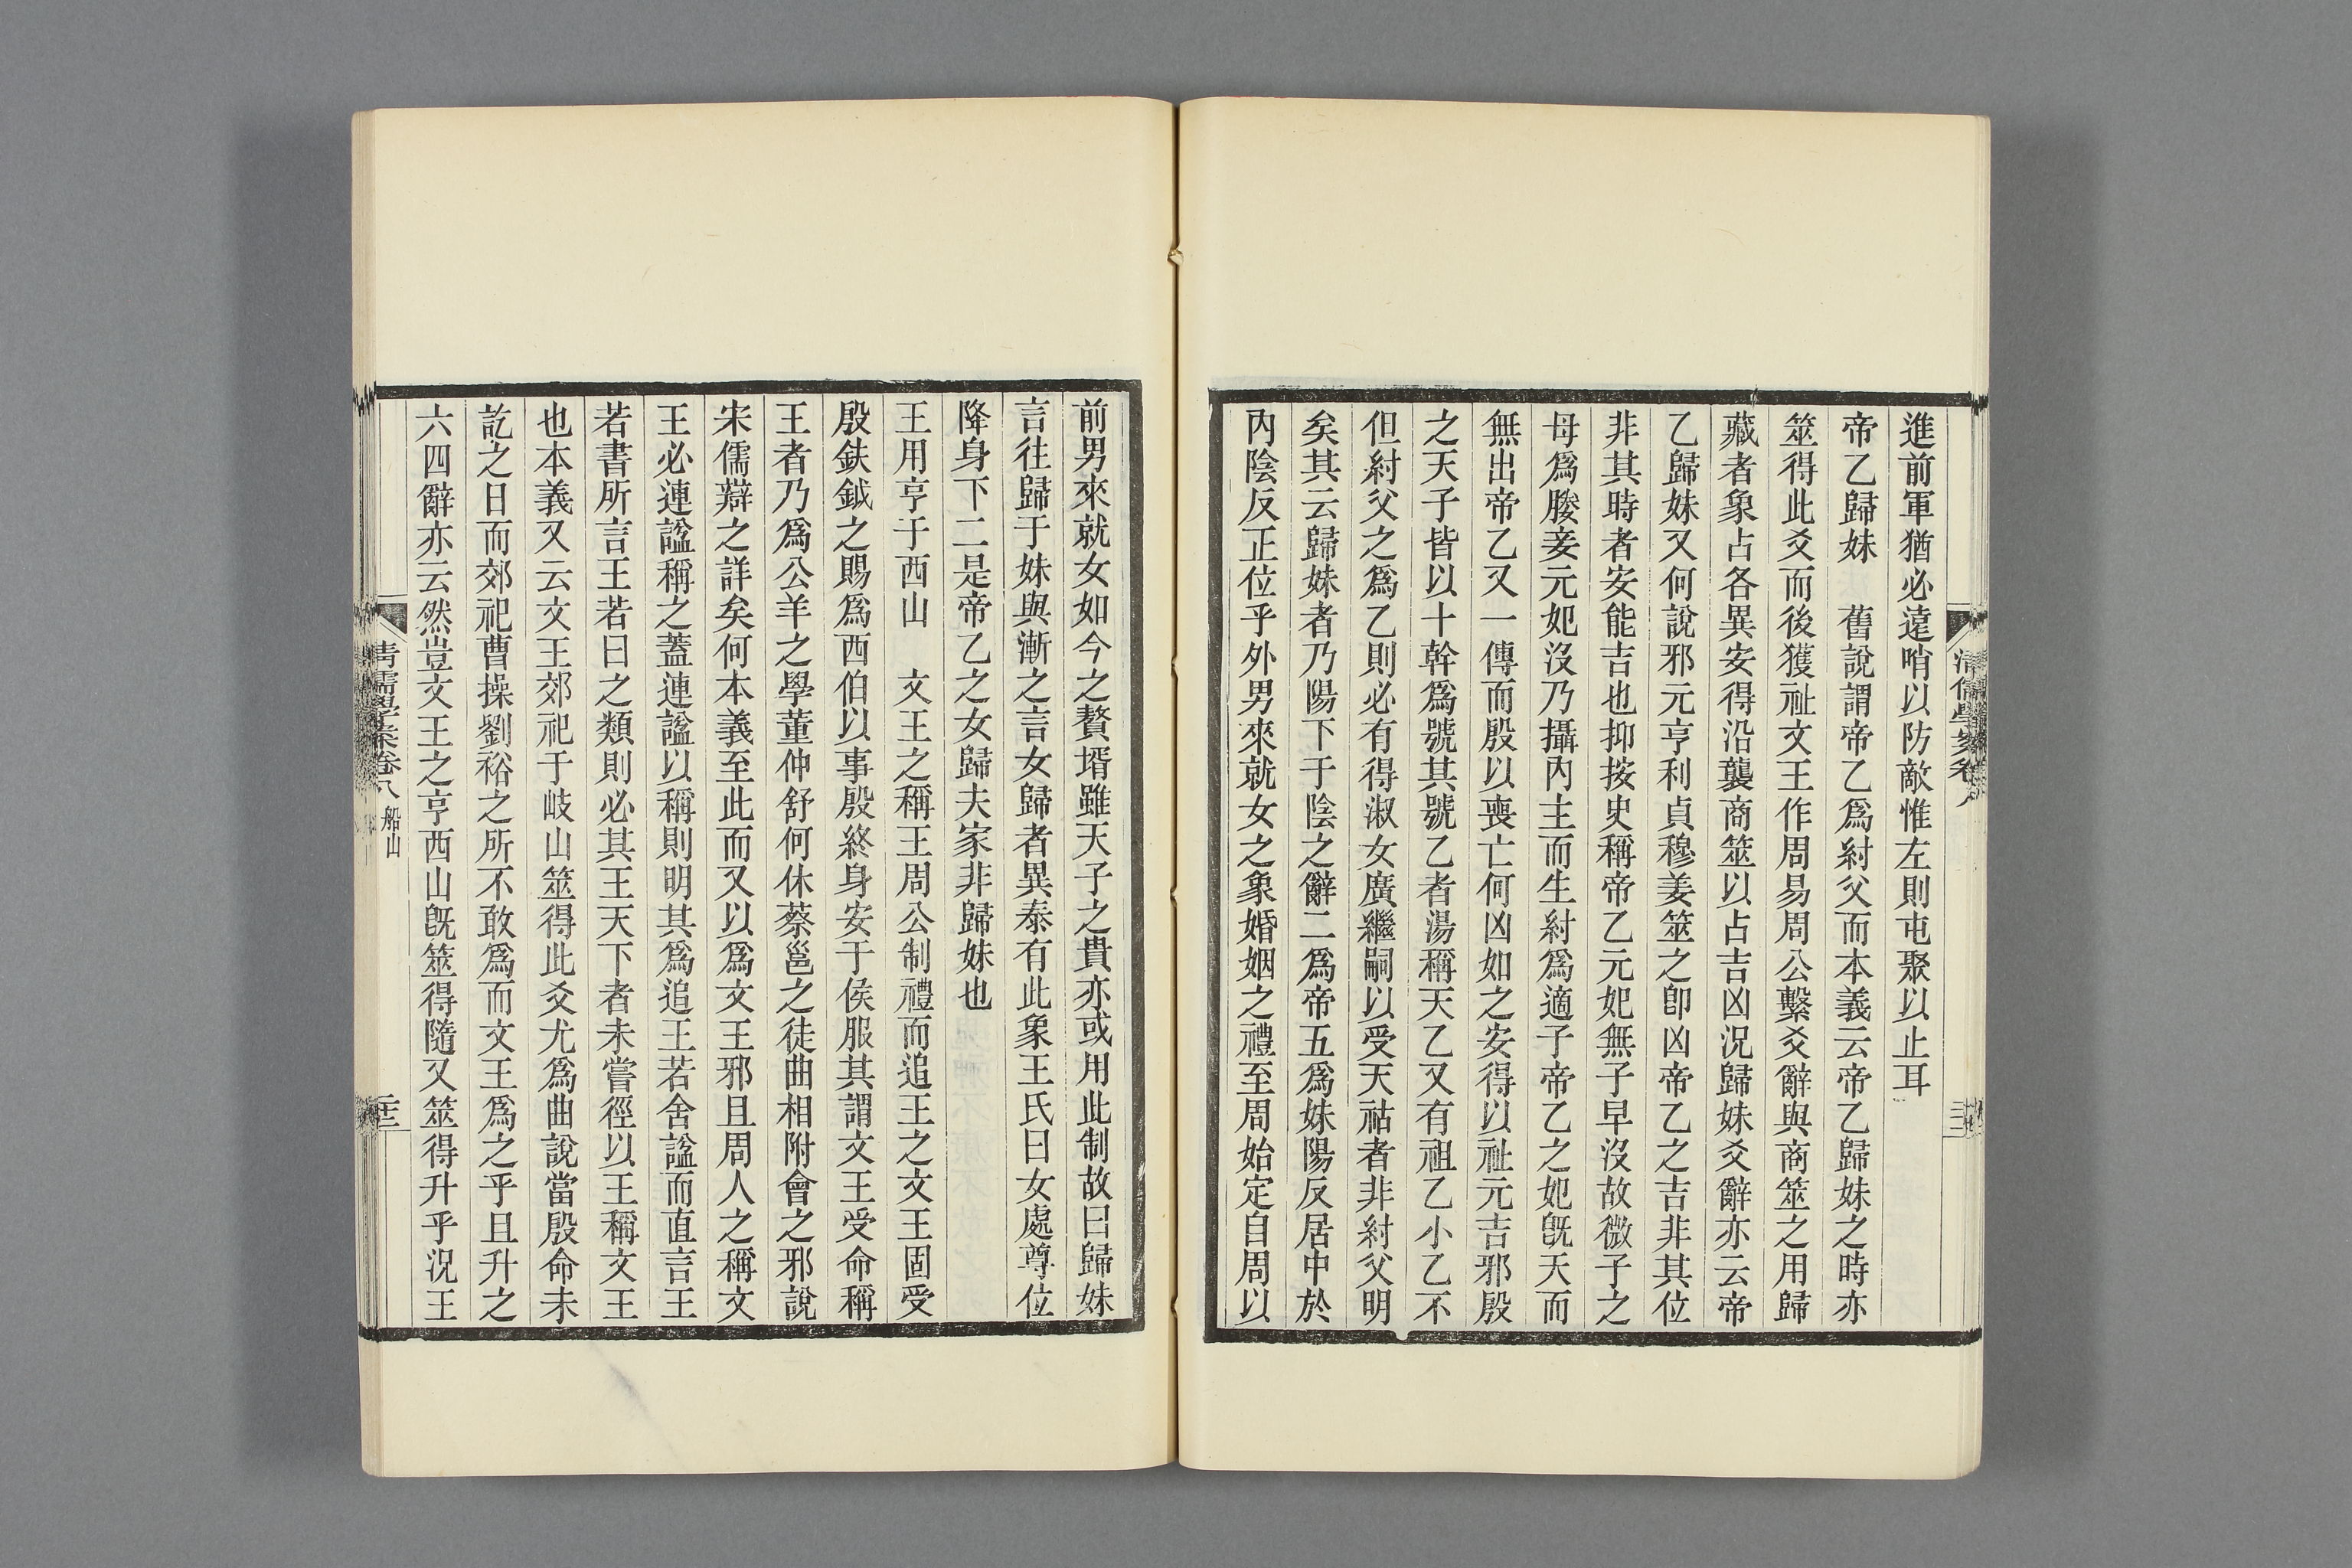 進前軍猶必遠哨以防敵惟左則屯聚以止耳
帝乙歸妹　舊說謂帝乙爲紂父而本義云帝乙歸妹之時亦
筮得此爻而後獲祉文王作周易周公繫爻辭與商筮之用歸
藏者象占各異安得沿襲商筮以占吉凶況歸妹爻辭亦云帝
乙歸妹又何說邪元亨利貞穆姜筮之卽凶帝乙之吉非其位
非其時者安能吉也抑按史稱帝乙元妃無子早沒故微子之
母爲媵妾元妃沒乃攝內主而生紂爲適子帝乙之妃旣夭而
無出帝乙又一傳而殷以喪亡何凶如之安得以祉元吉邪殷
之天子皆以十幹爲號其號乙者湯稱天乙又有祖乙小乙不
但紂父之爲乙則必有得淑女廣繼嗣以受天祜者非紂父明
矣其云歸妹者乃陽下于陰之辭二爲帝五爲妹陽反居中於
內陰反正位乎外男來就女之象婚姻之禮至周始定自周以
前男來就女如今之贅壻雖天子之貴亦或用此制故曰歸妹
言往歸于妹與漸之言女歸者異泰有此象王氏曰女處尊位
降身下二是帝乙之女歸夫家非歸妹也
王用亨于西山　文王之稱王周公制禮而追王之文王固受
殷鈇鉞之賜爲西伯以事殷終身安于侯服其謂文王受命稱
王者乃爲公羊之學董仲舒何休蔡邕之徒曲相附會之邪說
宋儒辯之詳矣何本義至此而又以爲文王邪且周人之稱文
王必連諡稱之蓋連諡以稱則明其爲追王若舍諡而直言王
若書所言王若曰之類則必其王天下者未嘗徑以王稱文王
也本義又云文王郊祀于岐山筮得此爻尤爲曲說當殷命未
訖之日而郊祀曹操劉裕之所不敢爲而文王爲之乎且升之
六四辭亦云然豈文王之亨西山旣筮得隨又筮得升乎況王
清儒學案卷八 船山